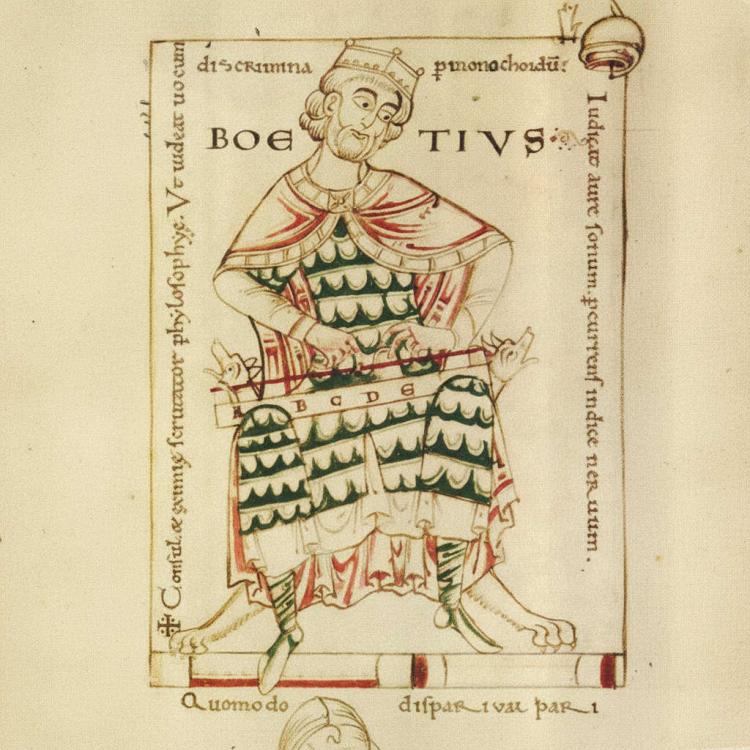 ✠ Consul & eximię scrutator phylosophyę. Vt uideat uocum
discrimina p monochordū:
Iudicat aure sonum. pcurrens indice neruum.
BOE TIVS
A B C D E
Quomodo dispar iuat pari